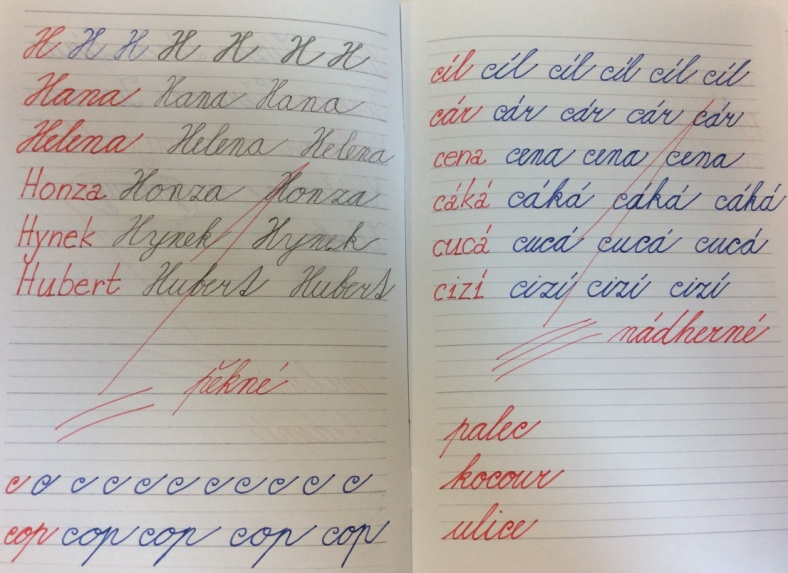 H H H H H H H
Hana Hana Hana
Helena Helena Helena
Honza Honza Honza
Hynek Hynek Hynek
Hubert Hubert Hubert
pěkné
c c c c c c c c c c c
cop cop cop cop cop
cíl cíl cíl cíl cíl cíl
cár cár cár cár cár
cena cena cena cena
cáká cáká cáká cáká
cucá cucá cucá cucá
cizí cizí cizí cizí
nádherné
palec
kocour
ulice